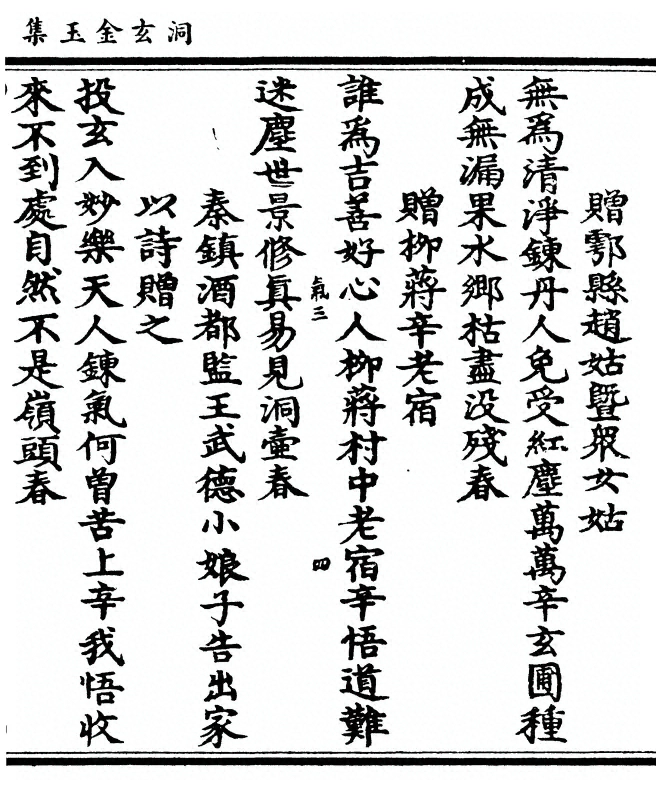 洞玄金玉集
贈鄠縣趙姑曁衆女姑
無爲清淨鍊丹人免受紅塵萬萬辛玄圃種
成無漏果水鄉枯盡没殘春
贈柳蔣辛老宿
誰爲吉善好心人柳蔣村中老宿辛悟道難
氣三
四
迷塵世景修真易見洞壷春
秦鎮酒都監王武德小娘子告出家
以詩贈之
投玄入妙樂天人鍊氣何曾苦上辛我悟收
來不到處自然不是嶺頭春